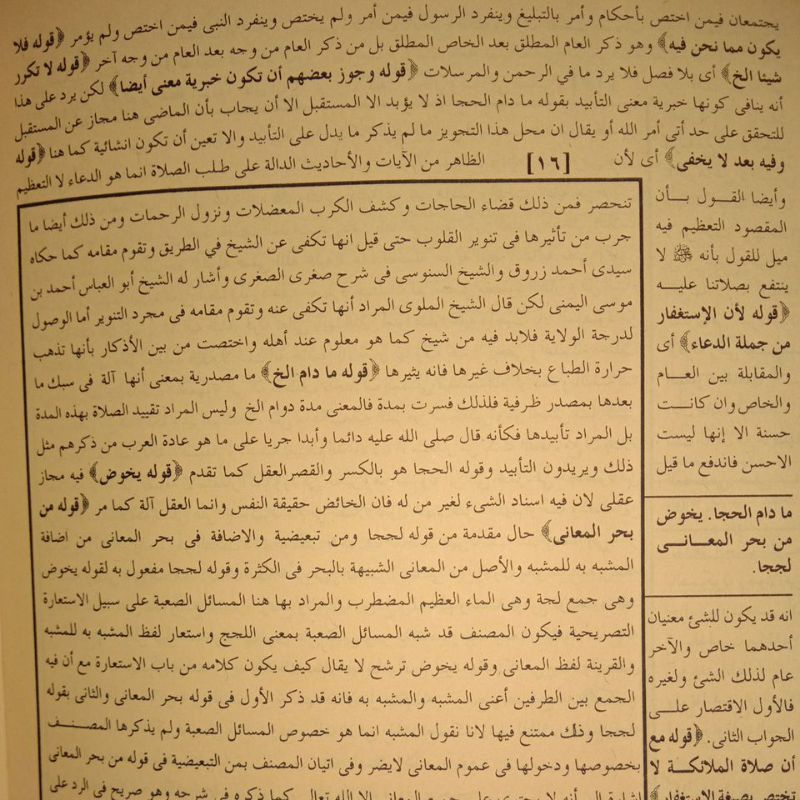 يجتمعان فيمن اختص بأحكام وأمر بالتبليغ وينفرد الرسول فيمن أمر ولم يختص وينفرد النبى فيمن اختص ولم يؤمر ﴿قوله فلا
يكون مما نحن فيه﴾ وهو ذكر العام المطلق بعد الخاص المطلق بل من ذكر العام من وجه بعد العام من وجه آخر ﴿قوله لا تكرر
شيئا الخ﴾ أى بلا فصل فلا يرد ما في الرحمن والمرسلات ﴿قوله وجوز بعضهم أن تكون خبرية معنى أيضا﴾ لكن يرد على هذا
أنه ينافى كونها خبرية معنى التأبيد بقوله ما دام الحجا اذ لا يؤبد الا المستقبل الا أن يجاب بأن الماضى هنا مجاز عن المستقبل
للتحقق على حد أتى أمر الله أو يقال ان محل هذا التجويز ما لم يذكر ما يدل على التأبيد والا تعين أن تكون انشائية كما هنا ﴿قوله
وفيه بعد لا يخفى﴾ أى لأن [١٦] الظاهر من الآيات والأحاديث الدالة على طلب الصلاة انما هو الدعاء لا التعظيم
وأيضا القول بأن
المقصود التعظيم فيه
ميل للقول بأنه ﷺ لا
ينتفع بصلاتنا عليه
﴿قوله لأن الإستغفار
من جملة الدعاء﴾ أى
والمقابلة بين العام
والخاص وان كانت
حسنة الا إنها ليست
الاحسن فاندفع ما قيل
ما دام الحجا. يخوض
من بحر المعانى
لججا.
انه قد يكون للشئ معنيان
أحدهما خاص والآخر
عام لذلك الشئ ولغيره
فالأول الاقتصار على
الجواب الثانى. ﴿قوله مع
أن صلاة الملائكة لا
تختص بصيغة الاستغفار﴾
تنحصر فمن ذلك قضاء الحاجات وكشف الكرب المعضلات ونزول الرحمات ومن ذلك أيضا ما
جرب من تأثيرها فى تنوير القلوب حتى قيل انها تكفى عن الشيخ في الطريق وتقوم مقامه كما حكاه
سيدى أحمد زروق والشيخ السنوسى فى شرح صغرى الصغرى وأشار له الشيخ أبو العباس أحمد بن
موسى اليمنى لكن قال الشيخ الملوى المراد أنها تكفى عنه وتقوم مقامه فى مجرد التنوير أما الوصول
لدرجة الولاية فلابد فيه من شيخ كما هو معلوم عند أهله واختصت من بين الأذكار بأنها تذهب
حرارة الطباع بخلاف غيرها فانه يثيرها ﴿قوله ما دام الخ﴾ ما مصدرية بمعنى أنها آلة فى سبك ما
بعدها بمصدر ظرفية فلذلك فسرت بمدة فالمعنى مدة دوام الخ وليس المراد تقييد الصلاة بهذه المدة
بل المراد تأبيدها فكأنه قال صلى الله عليه دائما وأبدا جريا على ما هو عادة العرب من ذكرهم مثل
ذلك ويريدون التأبيد وقوله الحجا هو بالكسر والقصر العقل كما تقدم ﴿قوله يخوض﴾ فيه مجاز
عقلى لان فيه اسناد الشىء لغير من له فان الخائض حقيقة النفس وانما العقل آلة كما مر ﴿قوله من
بحر المعانى﴾ حال مقدمة من قوله لججا ومن تبعيضية والاضافة فى بحر المعانى من اضافة
المشبه به للمشبه والأصل من المعانى الشبيهة بالبحر فى الكثرة وقوله لججا مفعول به لقوله يخوض
وهى جمع لجة وهى الماء العظيم المضطرب والمراد بها هنا المسائل الصعبة على سبيل الاستعارة
التصريحية فيكون المصنف قد شبه المسائل الصعبة بمعنى اللجج واستعار لفظ المشبه به للمشبه
والقرينة لفظ المعانى وقوله يخوض ترشح لا يقال كيف يكون كلامه من باب الاستعارة مع أن فيه
الجمع بين الطرفين أعنى المشبه والمشبه به فانه قد ذكر الأول فى قوله بحر المعانى والثانى بقوله
لججا وذلك ممتنع فيها لانا نقول المشبه انما هو خصوص المسائل الصعبة ولم يذكرها المصنف
بخصوصها ودخولها فى عموم المعانى لايضر وفى اتيان المصنف بمن التبعيضية فى قوله من بحر المعانى
اشارة الى أنه لا يحتوى على جميع المعانى الا الله تعالى كما ذكره فى شرحه وهو صريح فى الرد على